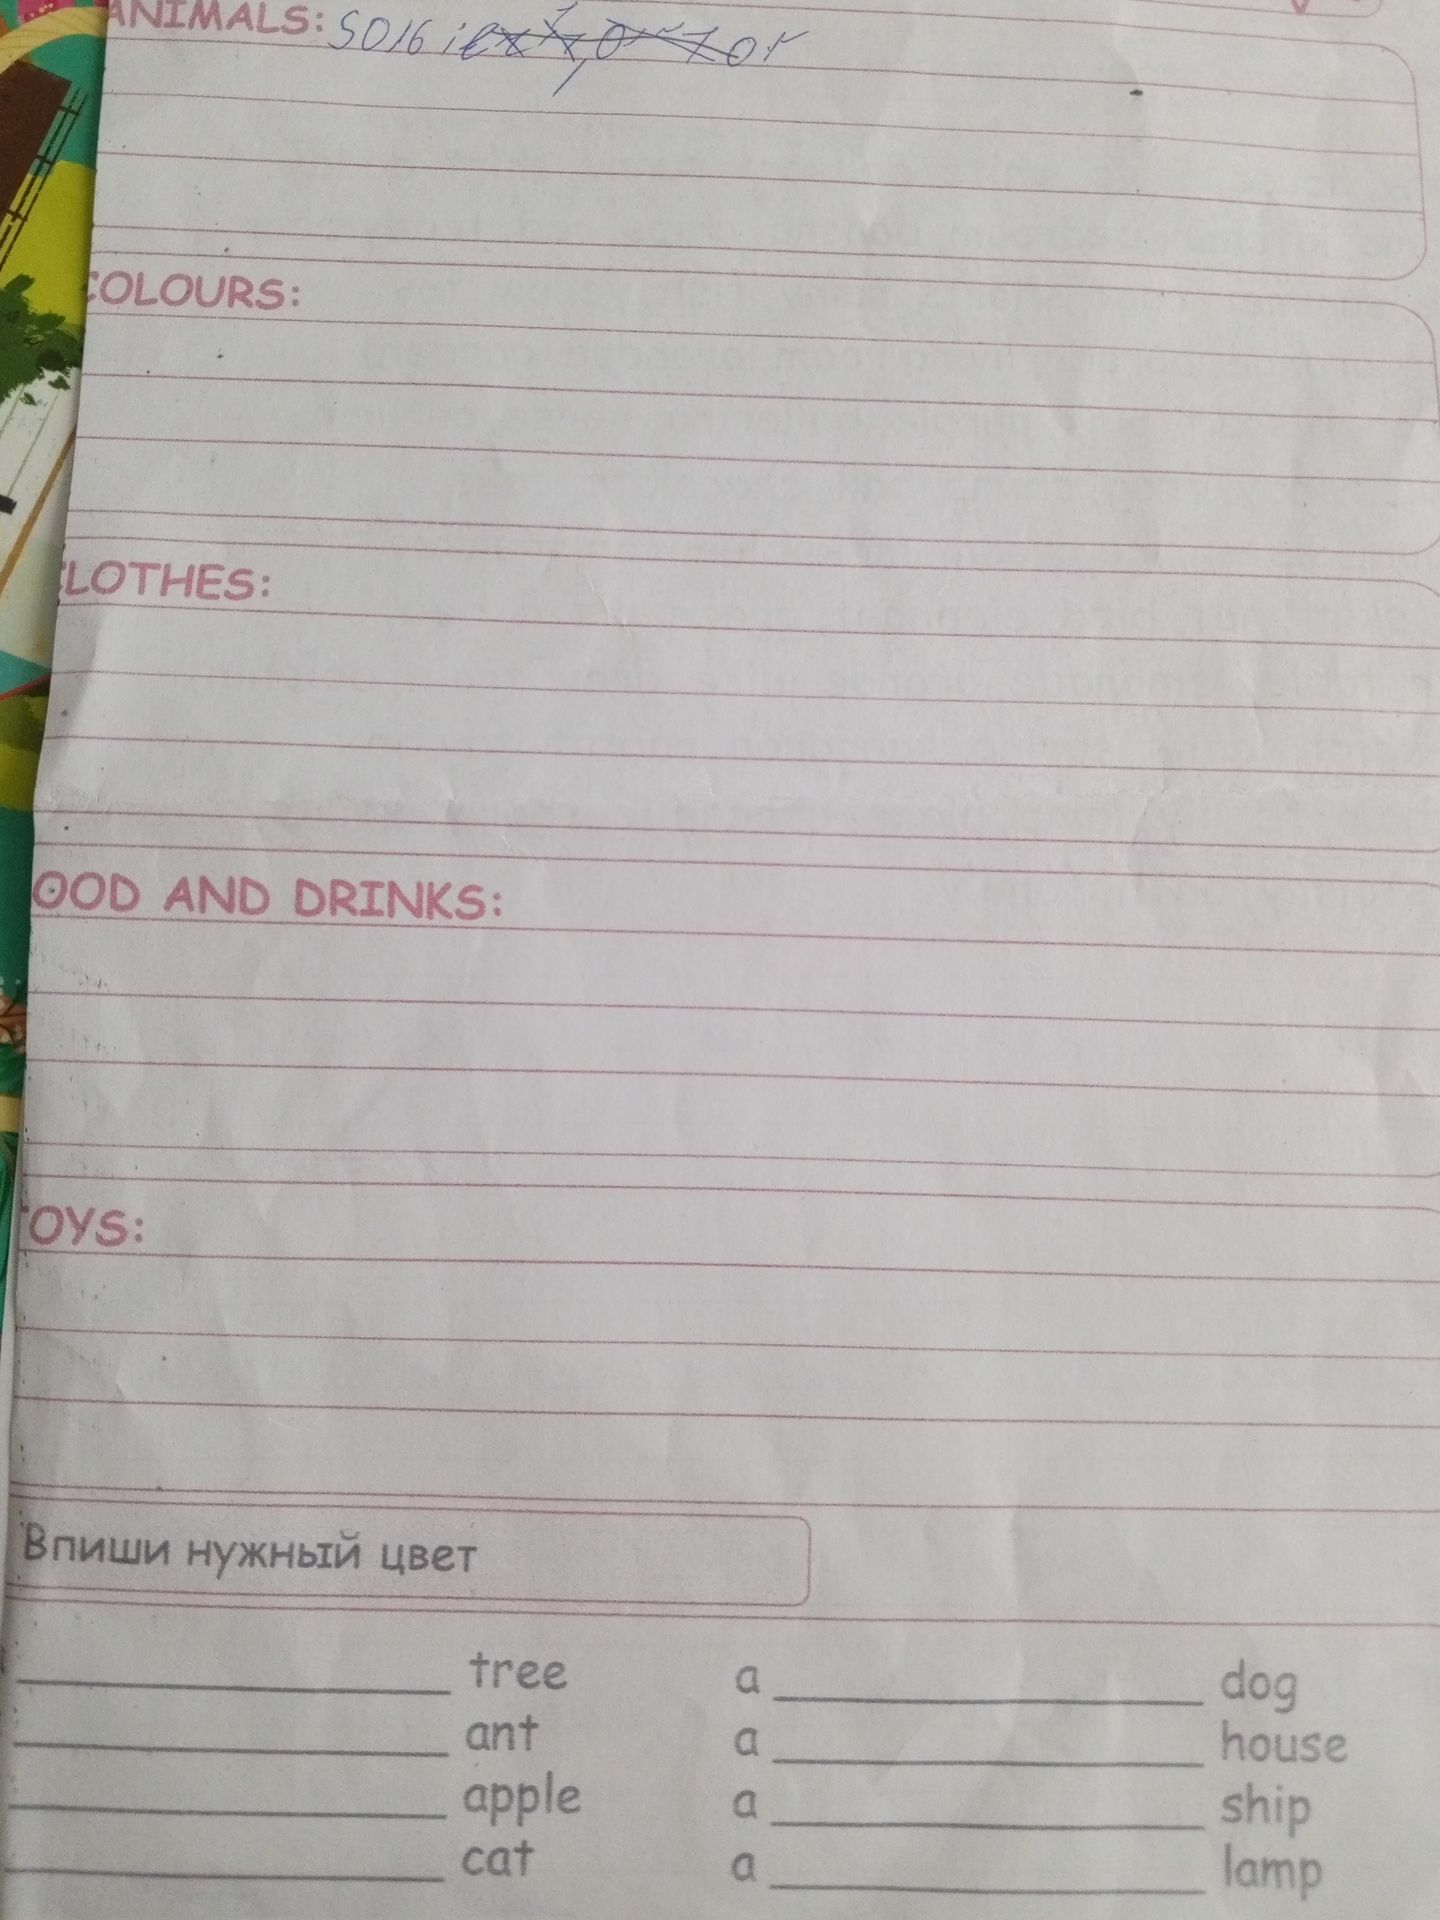 ANIMALS:
COLOURS:
CLOTHES:
OOD AND DRINKS:
OYS:
Впиши нужный цвет
tree a dog
ant a house
apple a ship
cat a lamp